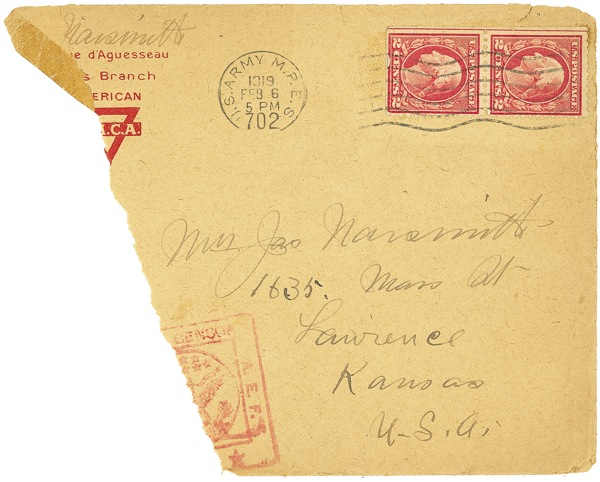 Naismith
e d'Aguesseau
s Branch
MERICAN
.C.A.
U.S. ARMY M.P.E.S.
1919
FEB 6
5 PM
702
U.S. POSTAGE
2 CENTS 2
U.S. POSTAGE
2 CENTS 2
Mrs Jas Naismith
1635. Mass St
Lawrence
Kansas
U.S.A.
CENSO
A.E.F.